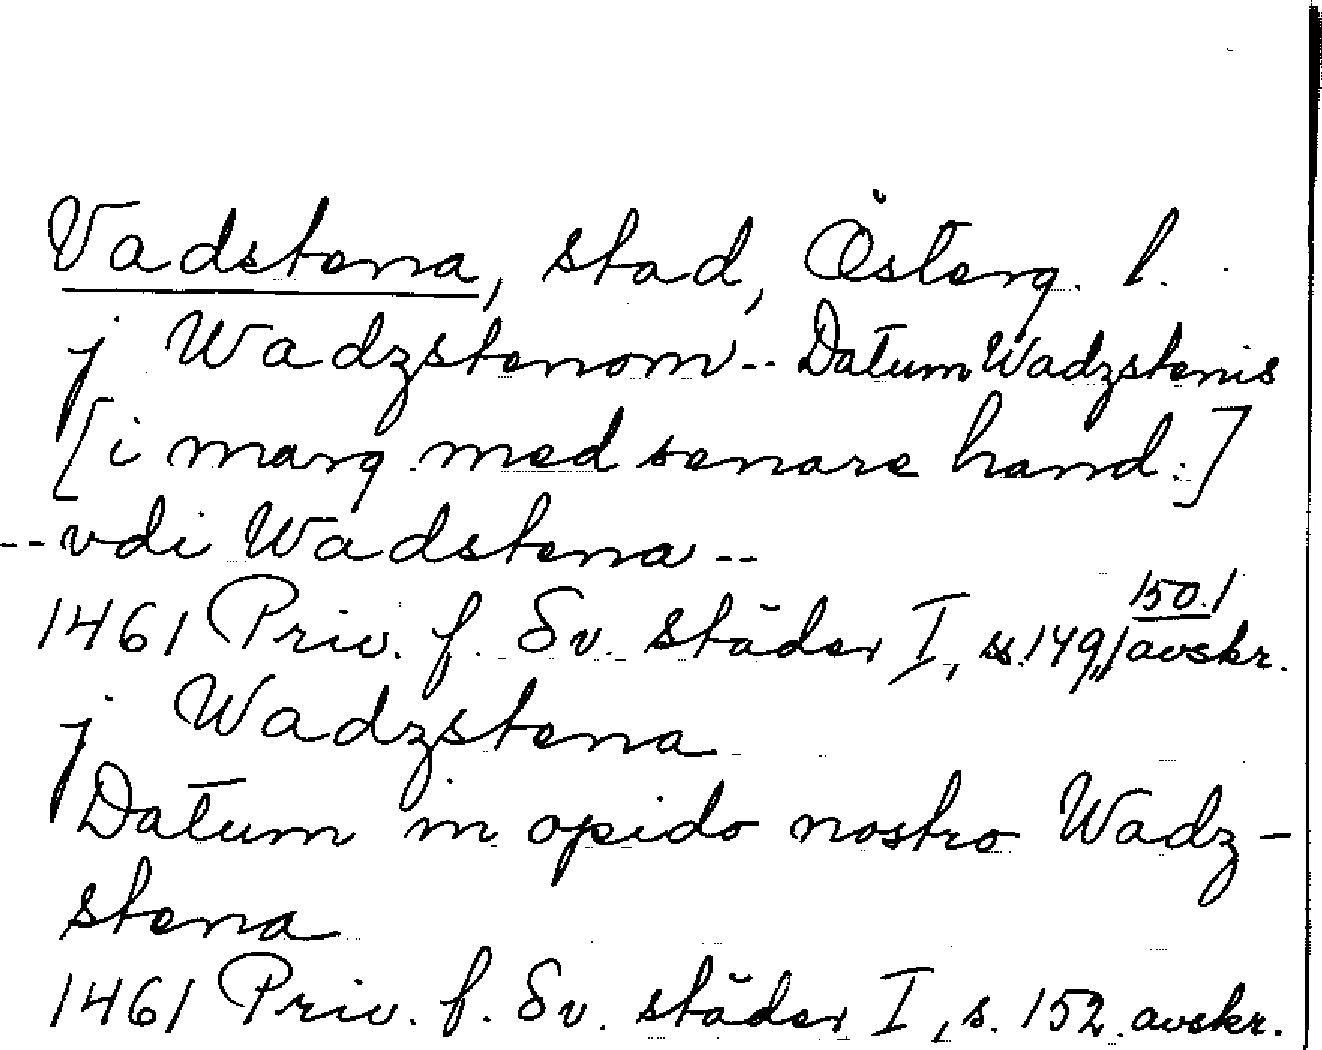 Vadstena, stad, Österg. l.
j Wadzstenom -- Datum Wadzstenis
[i marg med senare hand.]
-- vdi Wadstena --
1461 Priv. f. Sv. städer I, ss. 149, 150. avskr.
j Wadzstena
Datum in opido nostro Wadz-
stena
1461 Priv. f. Sv. städer I, s. 152. avskr.